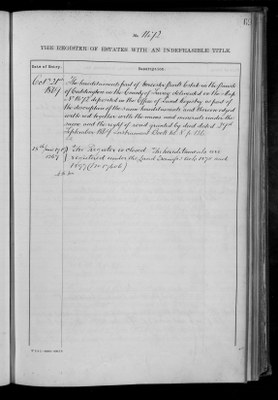 No. 1672
THE REGISTER OF ESTATES WITH AN INDEFEASIBLE TITLE.
Date of Entry.
Description.
Octr. 25th
1867
The hereditaments part of Fruit Estate in the Parish
of Coulsdon in the County of Surrey delineated on the Map
No. 1672 deposited in the Office of Land Registry as part of
the description of the same hereditaments and thereon edged
with red together with the mines and minerals under the
same and the right of road granted by deed dated
September 1867 Instrument Book No. 8 p.
The Register is closed. The hereditaments are
registered under the Land Transfer Acts 1875 and
1897